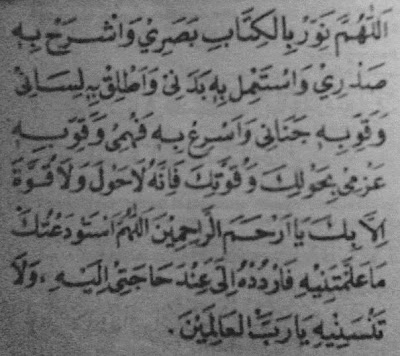 اَللّٰهُمَّ نَوِّرْ بِالْكِتَابِ بَصَرِيْ وَاشْرَحْ بِهِ
صَدْرِيْ وَاسْتَعْمِلْ بِهِ بَدَنِىْ وَاَطْلِقْ بِهِ لِسَانِىْ
وَقَوِّبِهِ جَنَانِى وَاَسْرِعْ بِهِ فَهْمِىْ وَقَوِّبِهِ
عَزْمِىْ بِحَوْلِكَ وَقُوَّتِكَ فَاِنَّهُ لَاحَوْلَ وَلَا قُوَّةَ
اِلَّا بِكَ يَااَرْحَمَ الرَّاحِمِيْنَ اَللّٰهُمَّ اَسْتَوْدِعُتُكَ
مَاعَلَّمْتَنِيْهِ فَارْدُدْهُ اِلَىَّ عِنْدَ حَاجَتِىْ اِلَيْهِ ، وَلَا
تَنْسَنِيْهِ يَارَبَّ الْعَالَمِيْنَ .